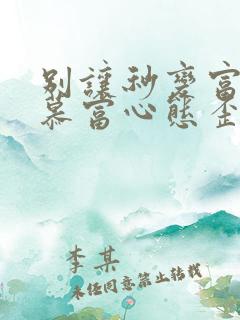 别让秒变富
慕富心态歪
李某
未经同意禁止转载